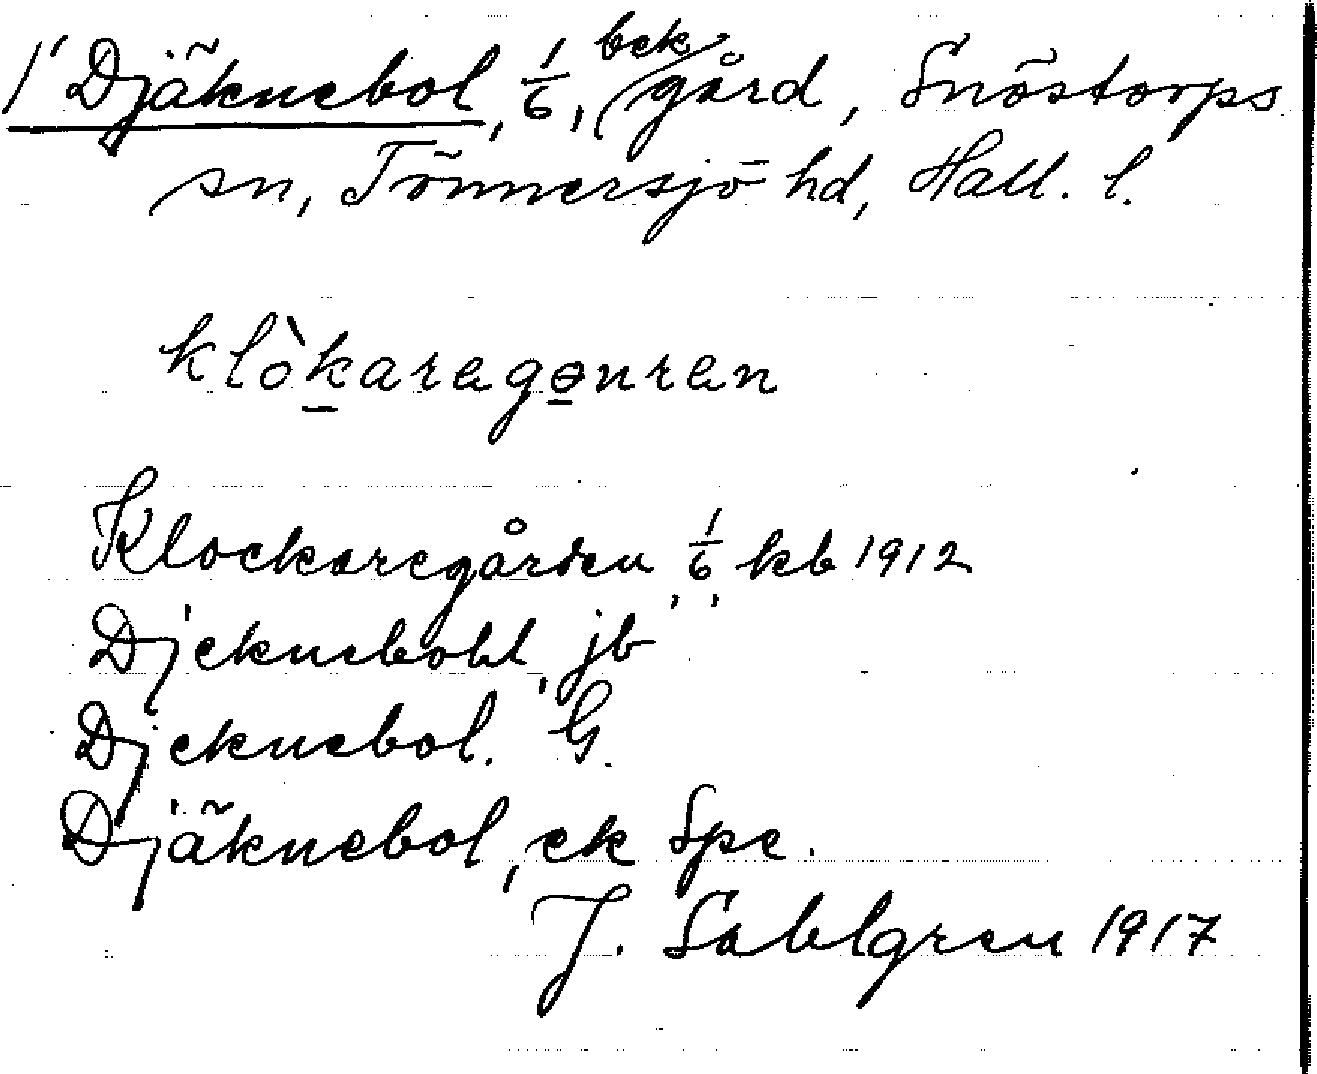 1' Djäknebol, 1/6, bck gård, Snöstorps
sn, Tönnersjö hd, Hall. l.
klòkaragɵnran
Klockaregården 1/6 kb 1912
Djeknebohl, jb
Djeknebol. G.
Djäknebol, ek Spe.
J. Sahlgren 1917